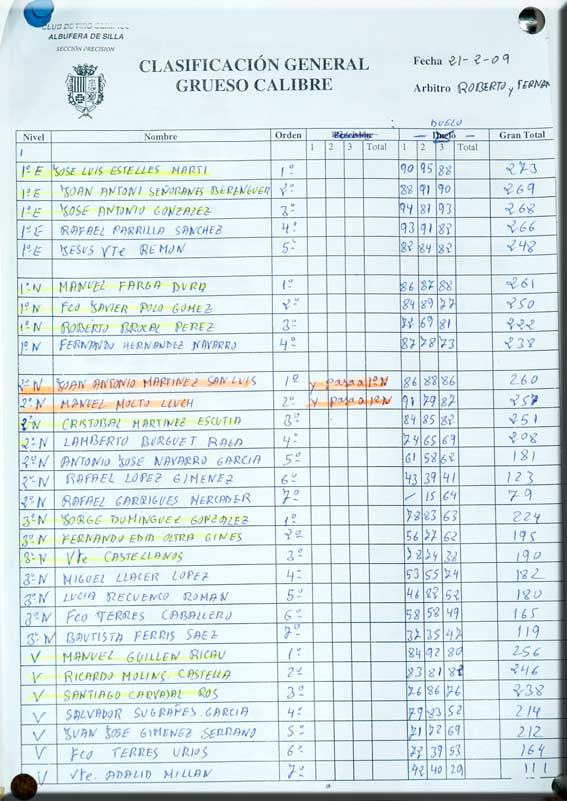 CLUB DE TIRO OLIMPICO
ALBUFERA DE SILLA
SECCIÓN PRECISION
CLASIFICACIÓN GENERAL
GRUESO CALIBRE
Fecha 21-2-09
Arbitro ROBERTO y FERNAN
DUELO
Nivel Nombre Orden Precisión Duelo Gran Total
1 2 3 Total 1 2 3 Total
1
1ª E JOSE LUIS ESTELLES MARTI 1º 90 95 88 273
1ª E JOAN ANTONI SEÑORANES BERENGUER 2º 88 91 90 269
1ª E JOSE ANTONIO GONZALEZ 3º 94 81 93 268
1ª E RAFAEL PARRILLA SANCHEZ 4º 93 91 82 266
1ª E JESUS Vte REMON 5º 82 84 82 248
1ª N MANUEL FARGA DURA 1º 86 87 88 261
1ª N FCO JAVIER POLO GOMEZ 2º 84 89 77 250
1ª N ROBERTO BROCAL PEREZ 3º 72 69 81 222
1ª N FERNANDO HERNANDEZ NAVARRO 4º 87 78 73 238
2ª N JOAN ANTONIO MARTINEZ SAN LUIS 1º y pasa a 1ª N 86 88 86 260
2ª N MANUEL MOLTO LLUCH 2º y pasa a 1ª N 91 79 87 257
2ª N CRISTOBAL MARTINEZ ESCUTIA 3º 84 85 82 251
2ª N LAMBERTO BURGUET RAGA 4º 74 65 69 208
2ª N ANTONIO JOSE NAVARRO GARCIA 5º 61 58 62 181
2ª N RAFAEL LOPEZ GIMENEZ 6º 43 39 41 123
2ª N RAFAEL GARRIGUES MERCADER 7º / 15 64 79
3ª N JORGE DOMINGUEZ GONZALEZ 1º 78 83 63 224
3ª N FERNANDO EDID OLTRA GINES 2º 56 77 62 195
3ª N Vte CASTELLANOS 3º 78 74 38 190
3ª N MIGUEL LLACER LOPEZ 4º 53 55 74 182
3ª N LUCIA RECUENCO ROMAN 5º 46 82 52 180
3ª N FCO TERRES CABALLERO 6º 58 58 49 165
3ª N BAUTISTA FERRIS SAEZ 7º 37 35 47 119
V MANUEL GUILLEN RICAU 1º 84 92 80 256
V RICARDO MOLINS CASTELLA 2º 83 81 82 246
V SANTIAGO CARVAJAL ROS 3º 76 86 76 238
V SALVADOR SUGRAÑES GARCIA 4º 79 83 52 214
V JUAN JOSE GIMENEZ SERRANO 5º 71 72 69 212
V FCO TERRES URIOS 6º 72 39 53 164
V Vte. ADALID MILLAN 7º 42 40 29 111